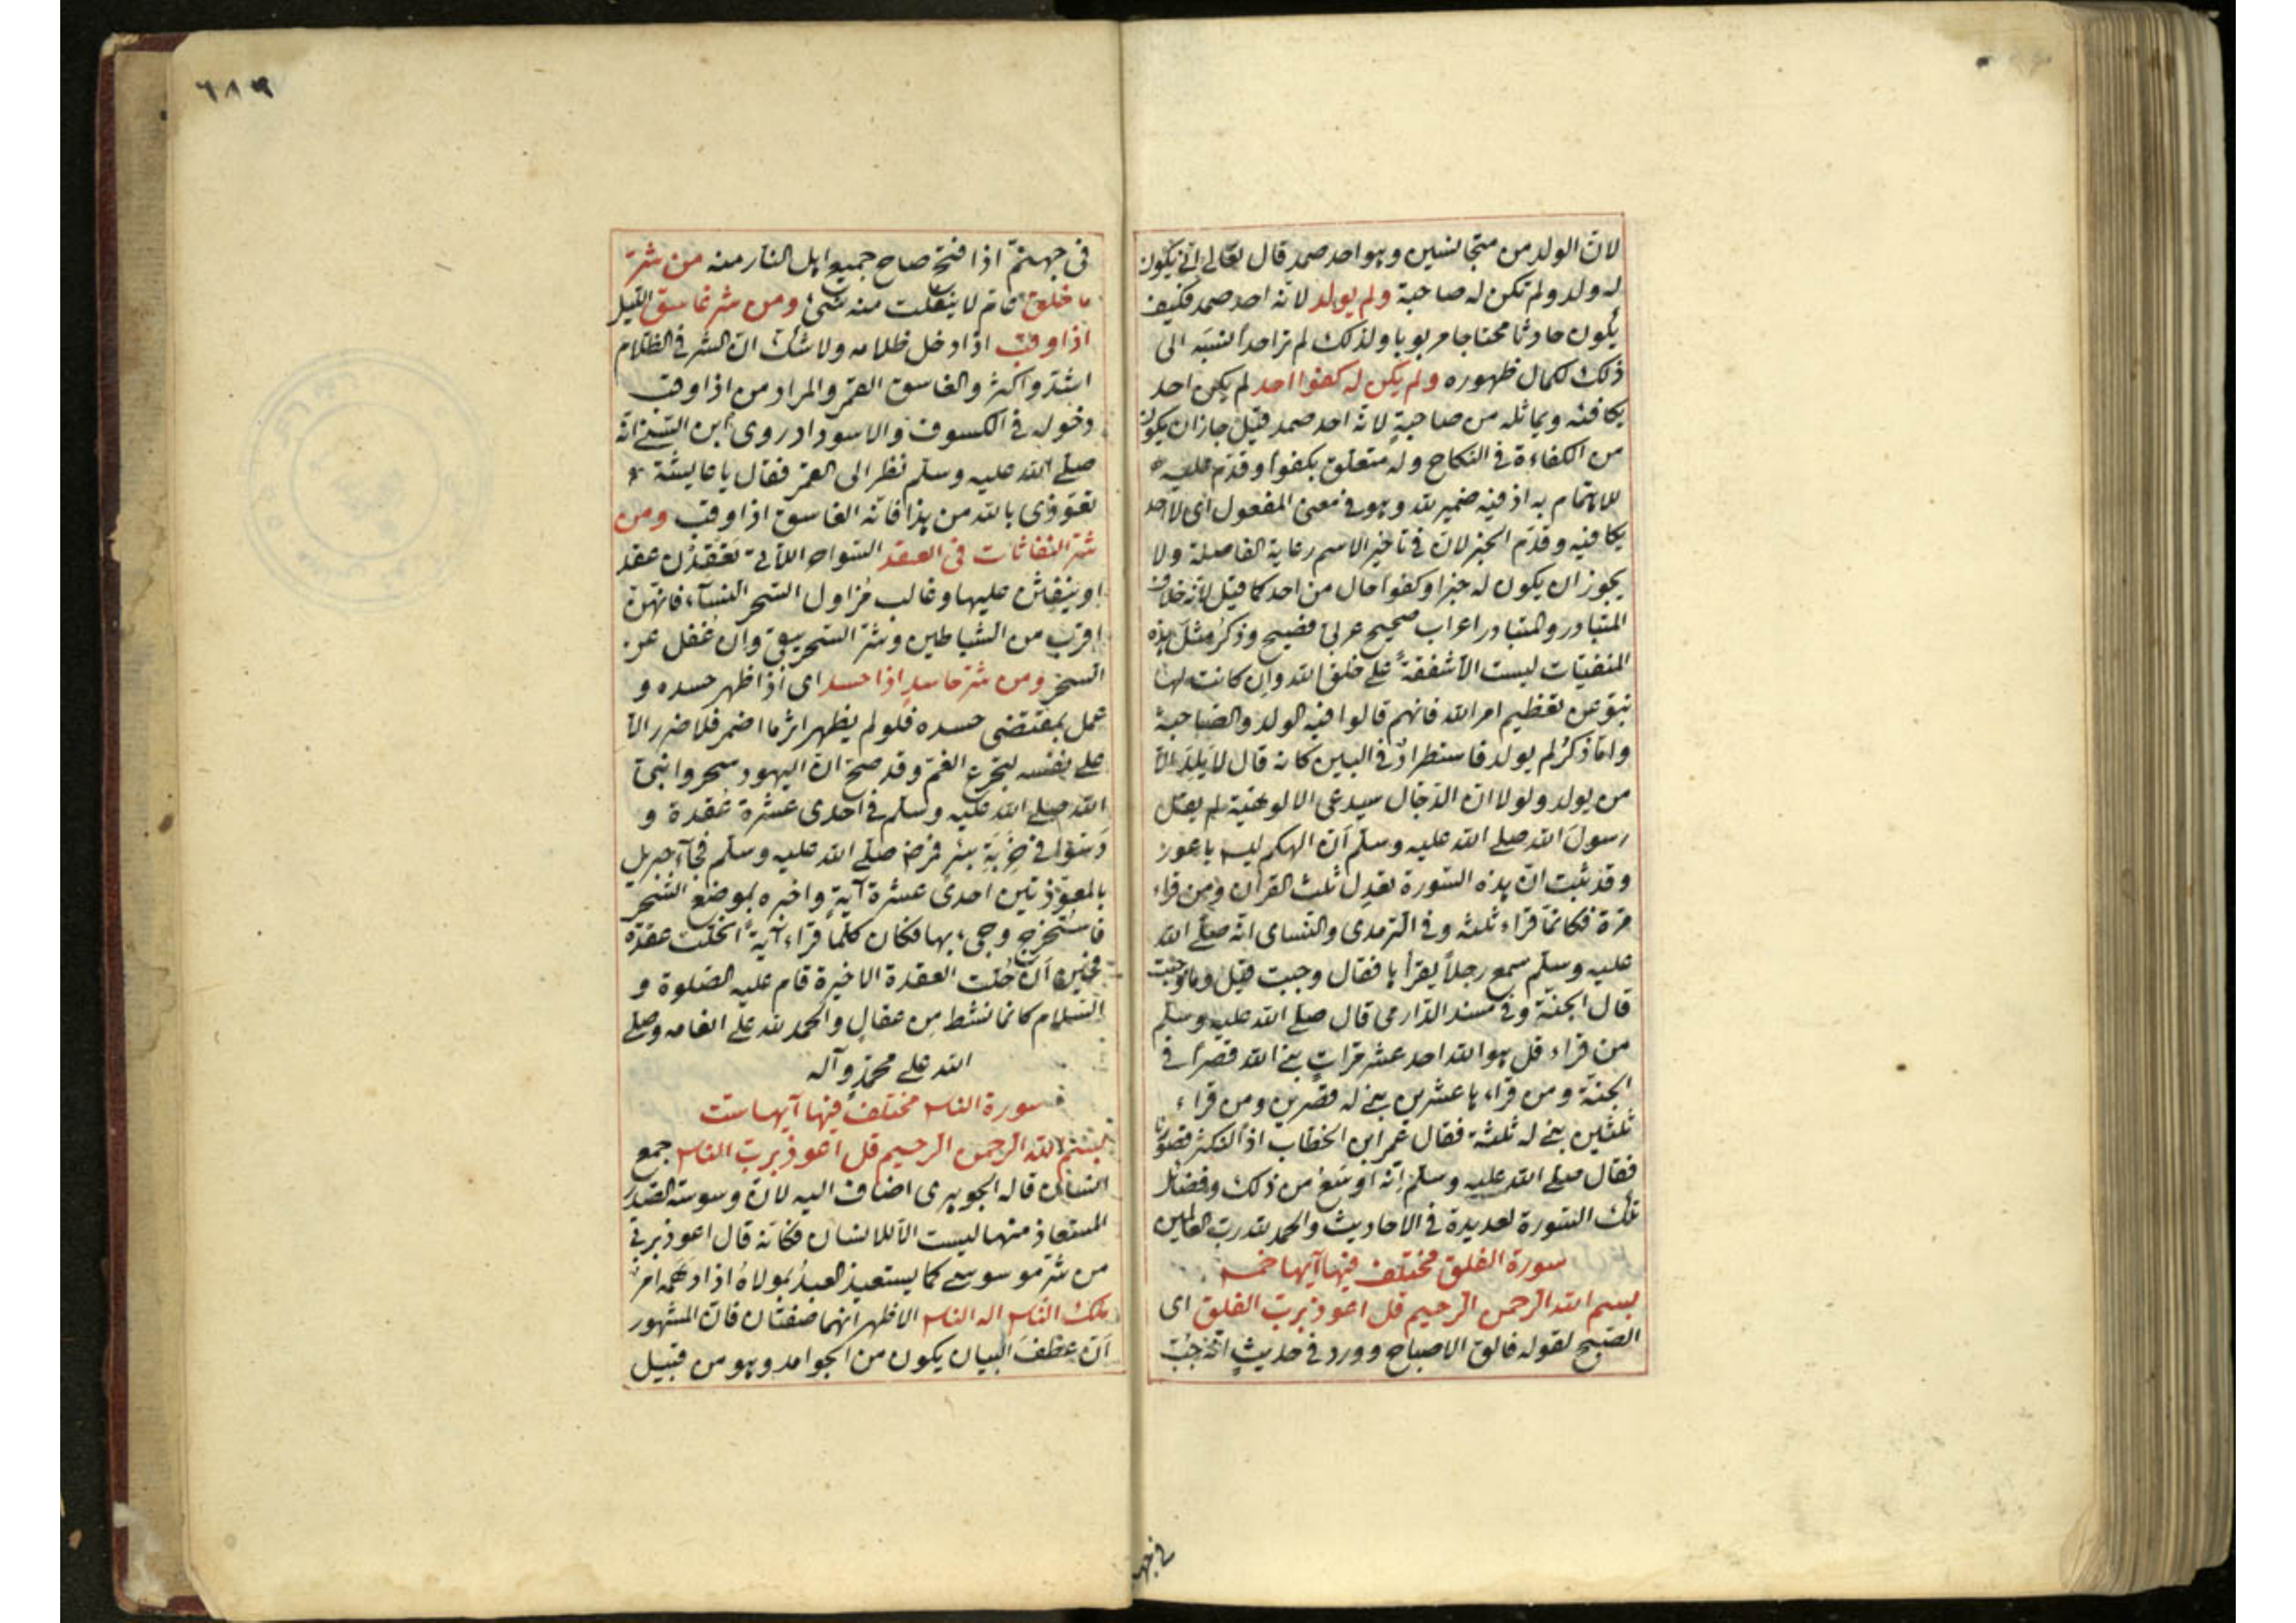 لان الولد من متجانسين وهو احد صمد قال تعالى انى يكون
له ولد ولم تكن له صاحبة ولم يولد لانه احد صمد فكيف
يكون حادثا محتاجا مربوبا ولذلك لم تر احدا نسبه الى
ذلك لكمال ظهوره ولم يكن له كفوا احد لم يكن احد
يكافئه ويماثله من صاحبة لانه احد صمد قيل جاز ان يكون
من الكفاءة في النكاح وله متعلق بكفوا وقدم عليه
للاهتمام به اذ فيه ضمير لله وهو في معنى المفعول اى لا احد
يكافيه وقدم الخبر لان في تأخير الاسم رعاية الفاصلة ولا
يجوز ان يكون له خبرا وكفوا حال من احد كما قيل لانه خلاف
المتبادر والمتبادر اعراب صحيح عربى فصيح وذكر مثل هذه
المنفيات ليست الا شفقة على خلق الله وان كانت لها
تنبؤ عن تعظيم امر الله فانهم قالوا فيه الولد والصاحبة
واما ذكر لم يولد فاستطراد في البين كانه قال لا يلد الا
من يولد ولولا ان الدجال سيدعى الالوهية لم يقل
رسول الله صلى الله عليه وسلم ان الهكم ليس باعور
وقد ثبت ان هذه السورة تعدل ثلث القران ومن قراء
مرة فكانما قراء ثلثه وفى الترمدى والنساى انه صلى الله
عليه وسلم سمع رجلا يقرأها فقال وجبت قيل وما وجبت
قال الجنة وفى مسند الدارمى قال صلى الله عليه وسلم
من قراء قل هو الله احد عشر مرات بنى الله قصرا في
الجنة ومن قراءها عشرين بنى له قصرين ومن قراء
ثلثين بنى له ثلثة فقال عمر ابن الخطاب اذا لنكثر قصورنا
فقال صلى الله عليه وسلم انه اوسع من ذلك وفضائل
تلك السورة لعديدة في الاحاديث والحمد لله رب العالمين
سورة الفلق مختلف فيها آيها خمس
بسم الله الرحمن الرحيم قل اعوذ برب الفلق اى
الصبح لقوله فالق الاصباح وورد في حديث انه جب
في جهـ
٦٨٩
في جهنم اذا فتح صاح جميع اهل النار منه من شر
ما خلق عام لا ينفلت منه شئ ومن شر غاسق الليل
اذا وقب اذا دخل ظلامه ولا شك ان الشر في الظلام
اشد واكثر والغاسق القمر والمراد من اذا وقب
دخوله في الكسوف والاسوداد روى ابن السنى انه
صلى الله عليه وسلم نظر الى القمر فقال يا عايشة
تعوذى بالله من هذا فانه الغاسق اذا وقب ومن
شر النفاثات في العقد السواحر اللاتى تعقدن عقد
او ينفثن عليها وغالب مزاول السحر النساء فانهن
اقرب من الشياطين وشر السحر يبقى وان غفل عن
السحر ومن شر حاسد اذا حسد اى اذا ظهر حسده و
عمل بمقتضى حسده فلو لم يظهر اثر ما اضمر فلا ضرر الا
على نفسه لتجرع الغم وقد صح ان اليهود سحروا نبى
الله صلى الله عليه وسلم في احدى عشرة عقدة و
دسوا في بئر فمرض صلى الله عليه وسلم فجاء جبريل
بالمعوذتين احدى عشرة آية واخبره بموضع السحر
فاستخرج وجىء بها فكان كلما قراء آية انحلت عقدة
فحين ان حلت العقدة الاخيرة قام عليه الصلوة و
السلام كانما نشط من عقال والحمد لله على انعامه وصلى
الله على محمد وآله
سورة الناس مختلف فيها آيها ست
بسم الله الرحمن الرحيم قل اعوذ برب الناس جمع
انسان قاله الجوهرى اضاف اليه لان وسوسة الصدر
المستعاذ منها ليست الا للانسان فكانه قال اعوذ بربى
من شر موسوسى كما يستعيذ العبد بمولاه اذا دهمه امر
ملك الناس اله الناس الاظهر انهما صفتان فان المشهور
ان عطف البيان يكون من الجوامد وهو من قبيل